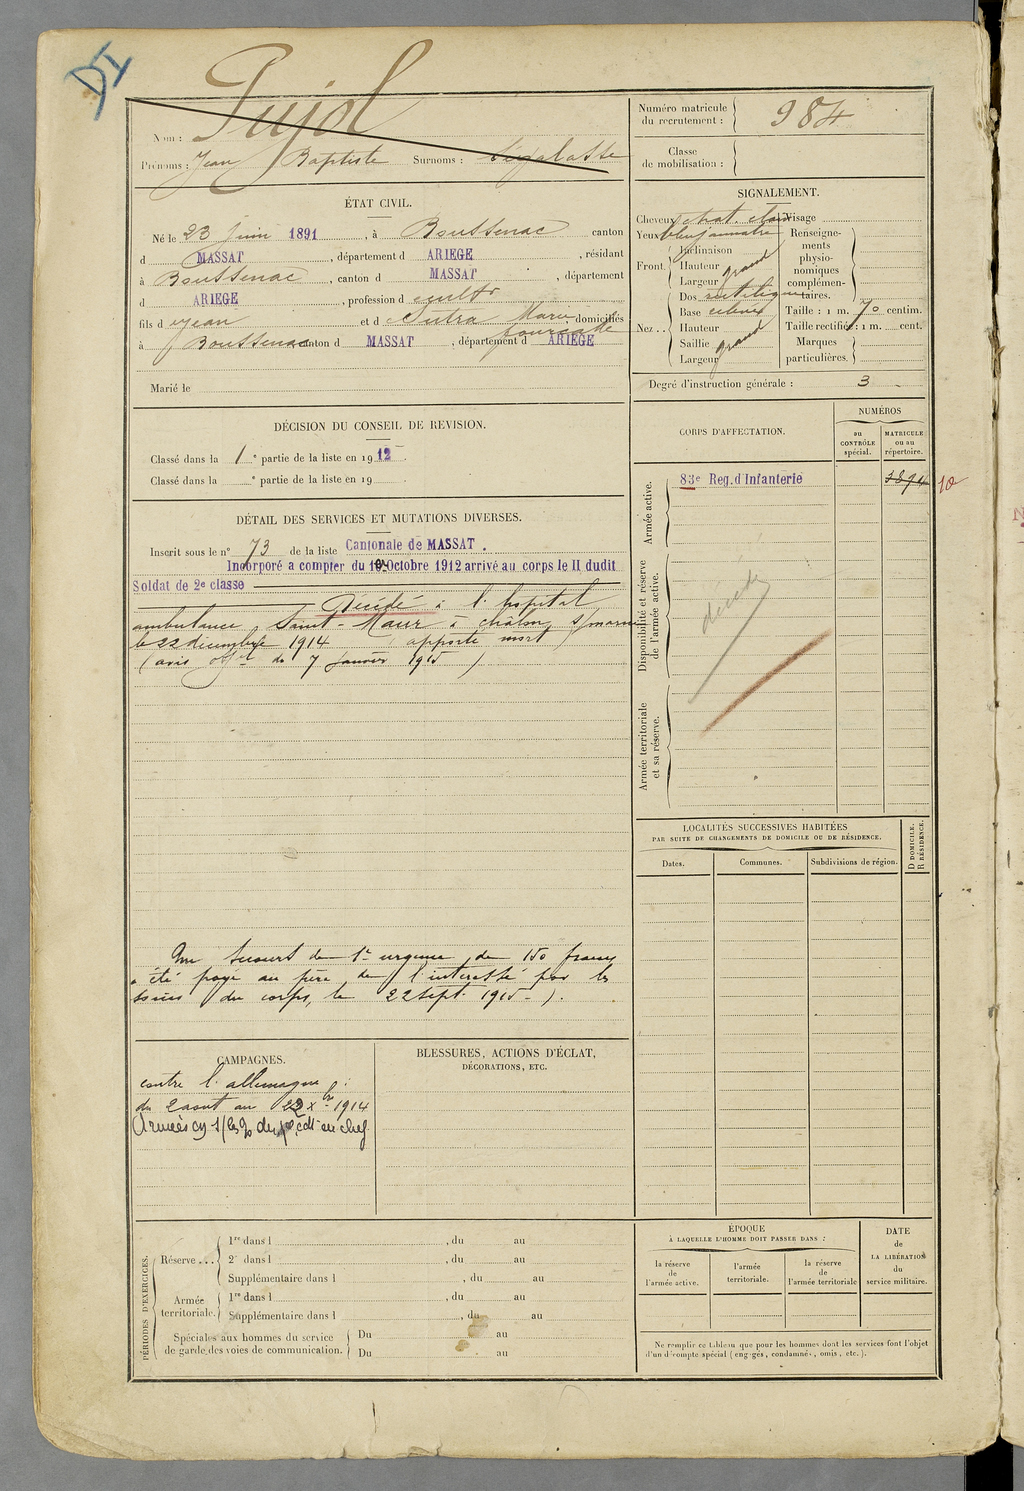 DI
Nom : Pujol
Prénoms : Jean Baptiste Surnoms :
Numéro matricule du recrutement : 984
Classe de mobilisation :
ÉTAT CIVIL.
Né le 23 juin 1891, à Boussenac canton
d MASSAT, département d ARIEGE, résidant
à Boussenac, canton d MASSAT, département
d ARIEGE, profession d cultr
fils d Jean et d Sutra Marie, domiciliés
à Boussenac canton d MASSAT, département d ARIEGE
Marié le
SIGNALEMENT.
Cheveux chat. clair Visage
Yeux bleu jaunatre
Front. Inclinaison
Hauteur grand
Largeur
Nez .. Dos rectiligne
Base
Hauteur grand
Saillie
Largeur
Renseignements physionomiques complémentaires.
Taille : 1 m. 70 centim.
Taille rectifiée : 1 m. cent.
Marques particulières.
Degré d'instruction générale : 3
DÉCISION DU CONSEIL DE REVISION.
Classé dans la 1e partie de la liste en 1912.
Classé dans la e partie de la liste en 19 .
CORPS D'AFFECTATION.
NUMÉROS
au CONTRÔLE spécial.
MATRICULE ou au répertoire.
Armée active.
83e Reg. d'Infanterie 3894 10
Disponibilité et réserve de l'armée active.
décédé
Armée territoriale et sa réserve.
DÉTAIL DES SERVICES ET MUTATIONS DIVERSES.
Inscrit sous le n° 73 de la liste Cantonale de MASSAT.
Incorporé a compter du 10 Octobre 1912 arrivé au corps le II dudit
Soldat de 2e classe
Décédé à l'hopital
ambulance Saint-Maur à châlon s/marne
le 22 décembre 1914 apporté mort
(avis offel du 7 janvier 1915)
Un secours de 1e urgence de 150 francs
a été payé au père de l'intéressé par les
soins du corps, le 22 sept. 1915.
LOCALITÉS SUCCESSIVES HABITÉES
PAR SUITE DE CHANGEMENTS DE DOMICILE OU DE RÉSIDENCE.
Dates. Communes. Subdivisions de région. D DOMICILE. R RÉSIDENCE.
CAMPAGNES.
contre l'allemagne :
du 2 aout au 22 Xbre 1914
BLESSURES, ACTIONS D'ÉCLAT,
DÉCORATIONS, ETC.
PÉRIODES D'EXERCICES.
Réserve ... 1re dans l , du au
2e dans l , du au
Supplémentaire dans l , du au
Armée territoriale. 1re dans l , du au
Supplémentaire dans l , du au
Spéciales aux hommes du service de garde des voies de communication. Du au
Du au
ÉPOQUE
À LAQUELLE L'HOMME DOIT PASSER DANS :
la réserve de l'armée active.
l'armée territoriale.
la réserve de l'armée territoriale
DATE de LA LIBÉRATION du service militaire.
Ne remplir ce tableau que pour les hommes dont les services font l'objet
d'un décompte spécial (engagés, condamnés, omis, etc.).